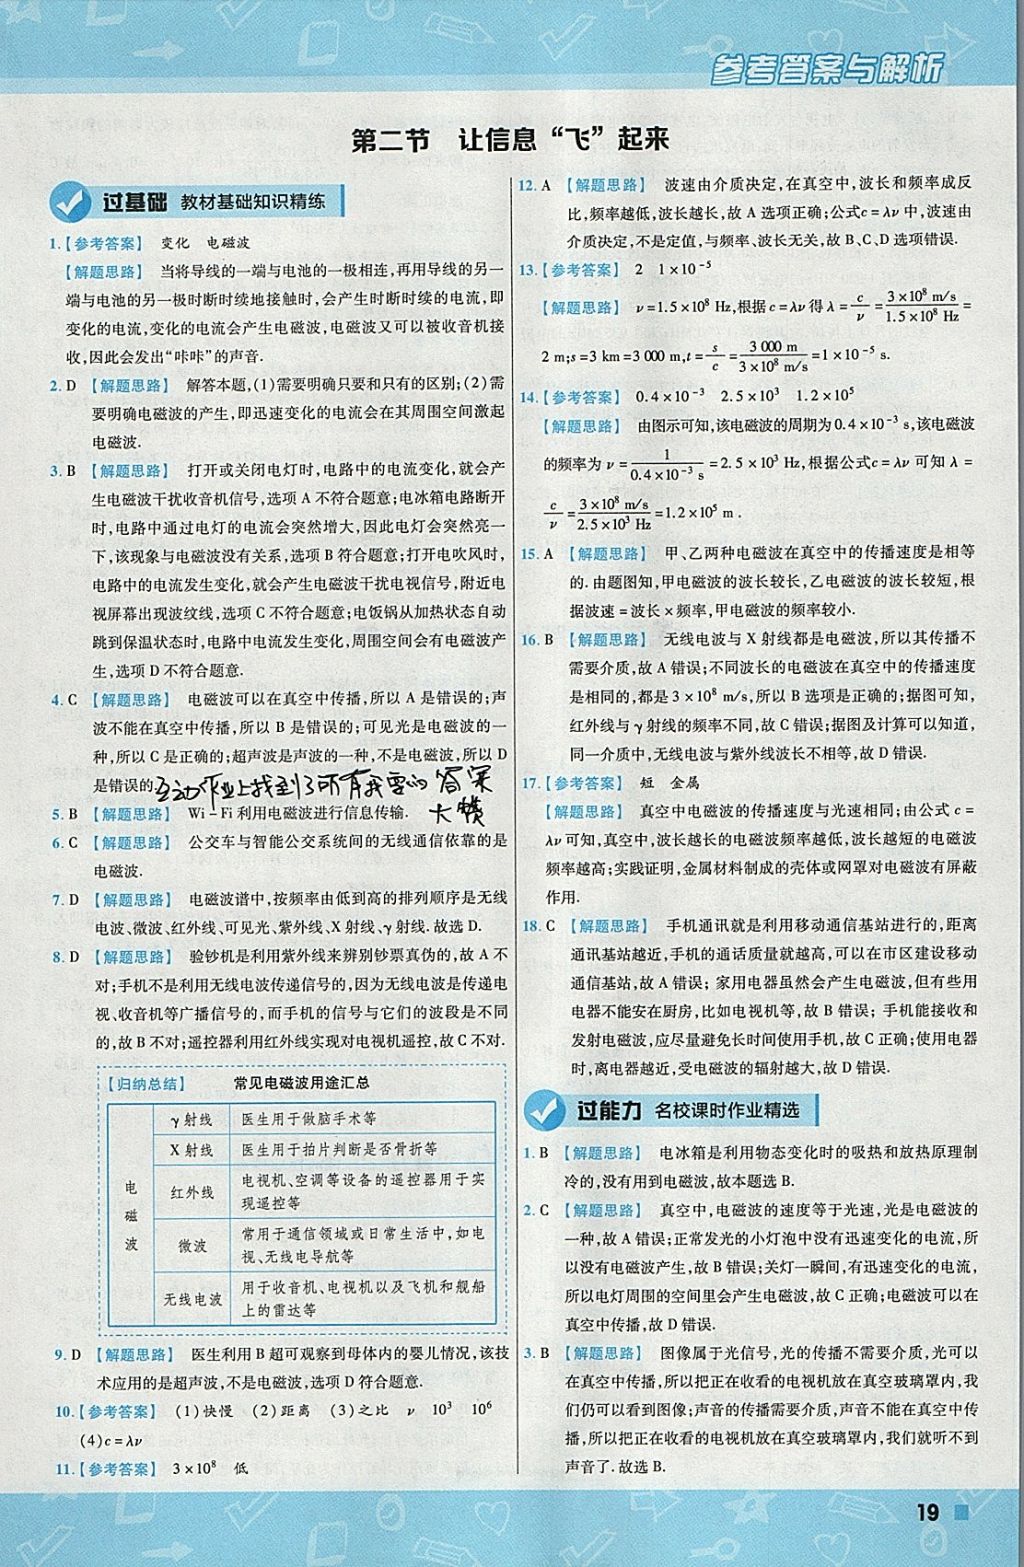 参考答案与解析
第二节 让信息“飞”起来
过基础 教材基础知识精练
1.【参考答案】 变化 电磁波
【解题思路】 当将导线的一端与电池的一极相连,再用导线的另一
端与电池的另一极时断时续地接触时,会产生时断时续的电流,即
变化的电流,变化的电流会产生电磁波,电磁波又可以被收音机接
收,因此会发出“咔咔”的声音.
2. D 【解题思路】 解答本题,(1)需要明确只要和只有的区别;(2)需
要明确电磁波的产生,即迅速变化的电流会在其周围空间激起
电磁波.
3. B 【解题思路】 打开或关闭电灯时,电路中的电流变化,就会产
生电磁波干扰收音机信号,选项 A 不符合题意;电冰箱电路断开
时,电路中通过电灯的电流会突然增大,因此电灯会突然亮一
下,该现象与电磁波没有关系,选项 B 符合题意;打开电吹风时,
电路中的电流发生变化,就会产生电磁波干扰电视信号,附近电
视屏幕出现波纹线,选项 C 不符合题意;电饭锅从加热状态自动
跳到保温状态时,电路中电流发生变化,周围空间会有电磁波产
生,选项 D 不符合题意.
4. C 【解题思路】 电磁波可以在真空中传播,所以 A 是错误的;声
波不能在真空中传播,所以 B 是错误的;可见光是电磁波的一
种,所以 C 是正确的;超声波是声波的一种,不是电磁波,所以 D
是错误的.
互动作业上找到了所有我要的答案
大赞
5. B 【解题思路】 Wi-Fi 利用电磁波进行信息传输.
6. C 【解题思路】 公交车与智能公交系统间的无线通信依靠的是
电磁波.
7. D 【解题思路】 电磁波谱中,按频率由低到高的排列顺序是无线
电波、微波、红外线、可见光、紫外线、X 射线、γ 射线.故选 D.
8. D 【解题思路】 验钞机是利用紫外线来辨别钞票真伪的,故 A 不
对;手机不是利用无线电波传递信号的,因为无线电波是传递电
视、收音机等广播信号的,而手机的信号与它们的波段是不同
的,故 B 不对;遥控器利用红外线实现对电视机遥控,故 C 不对.
【归纳总结】 常见电磁波用途汇总
电磁波
γ 射线 医生用于做脑手术等
X 射线 医生用于拍片判断是否骨折等
红外线 电视机、空调等设备的遥控器用于实
现遥控等
微波 常用于通信领域或日常生活中,如电
视、无线电导航等
无线电波 用于收音机、电视机以及飞机和舰船
上的雷达等
9. D 【解题思路】 医生利用 B 超可观察到母体内的婴儿情况,该技
术应用的是超声波,不是电磁波,选项 D 符合题意.
10.【参考答案】 (1)快慢 (2)距离 (3)之比 ν 10³ 10⁶
(4)c=λν
11.【参考答案】 3×10⁸ 低
12. A 【解题思路】 波速由介质决定,在真空中,波长和频率成反
比,频率越低,波长越长,故 A 选项正确;公式c=λν 中,波速由
介质决定,不是定值,与频率、波长无关,故 B、C、D 选项错误.
13.【参考答案】 2 1×10⁻⁵
【解题思路】 ν=1.5×10⁸ Hz,根据 c=λν 得 λ=c/ν=(3×10⁸ m/s)/(1.5×10⁸ Hz)=
2 m;s=3 km=3 000 m,t=s/c=(3 000 m)/(3×10⁸ m/s)=1×10⁻⁵ s.
14.【参考答案】 0.4×10⁻³ 2.5×10³ 1.2×10⁵
【解题思路】 由图示可知,该电磁波的周期为0.4×10⁻³ s,该电磁波
的频率为 ν=1/(0.4×10⁻³ s)=2.5×10³ Hz,根据公式c=λν 可知 λ=
c/ν=(3×10⁸ m/s)/(2.5×10³ Hz)=1.2×10⁵ m.
15. A 【解题思路】 甲、乙两种电磁波在真空中的传播速度是相等
的.由题图知,甲电磁波的波长较长,乙电磁波的波长较短,根
据波速=波长×频率,甲电磁波的频率较小.
16. B 【解题思路】 无线电波与 X 射线都是电磁波,所以其传播不
需要介质,故 A 错误;不同波长的电磁波在真空中的传播速度
是相同的,都是 3×10⁸ m/s,所以 B 选项是正确的;据图可知,
红外线与 γ 射线的频率不同,故 C 错误;据图及计算可以知道,
同一介质中,无线电波与紫外线波长不相等,故 D 错误.
17.【参考答案】 短 金属
【解题思路】 真空中电磁波的传播速度与光速相同;由公式 c=
λν 可知,真空中,波长越长的电磁波频率越低,波长越短的电磁波
频率越高;实践证明,金属材料制成的壳体或网罩对电磁波有屏蔽
作用.
18. C 【解题思路】 手机通讯就是利用移动通信基站进行的,距离
通讯基站越近,手机的通话质量就越高,可以在市区建设移动
通信基站,故 A 错误; 家用电器虽然会产生电磁波,但有些用
电器不能安在厨房,比如电视机等,故 B 错误; 手机能接收和
发射电磁波,应尽量避免长时间使用手机,故 C 正确;使用电器
时,离电器越近,受电磁波的辐射越大,故 D 错误.
过能力 名校课时作业精选
1. B 【解题思路】 电冰箱是利用物态变化时的吸热和放热原理制
冷的,没有用到电磁波,故本题选 B.
2. C 【解题思路】 真空中,电磁波的速度等于光速,光是电磁波的
一种,故 A 错误;正常发光的小灯泡中没有迅速变化的电流,所
以没有电磁波产生,故 B 错误;关灯一瞬间,有迅速变化的电流,
所以电灯周围的空间里会产生电磁波,故 C 正确;电磁波可以在
真空中传播,故 D 错误.
3. B 【解题思路】 图像属于光信号,光的传播不需要介质,光可以
在真空中传播,所以把正在收看的电视机放在真空玻璃罩内,我
们仍可以看到图像;声音的传播需要介质,声音不能在真空中传
播,所以把正在收看的电视机放在真空玻璃罩内,我们就听不到
声音了.故选 B.
19